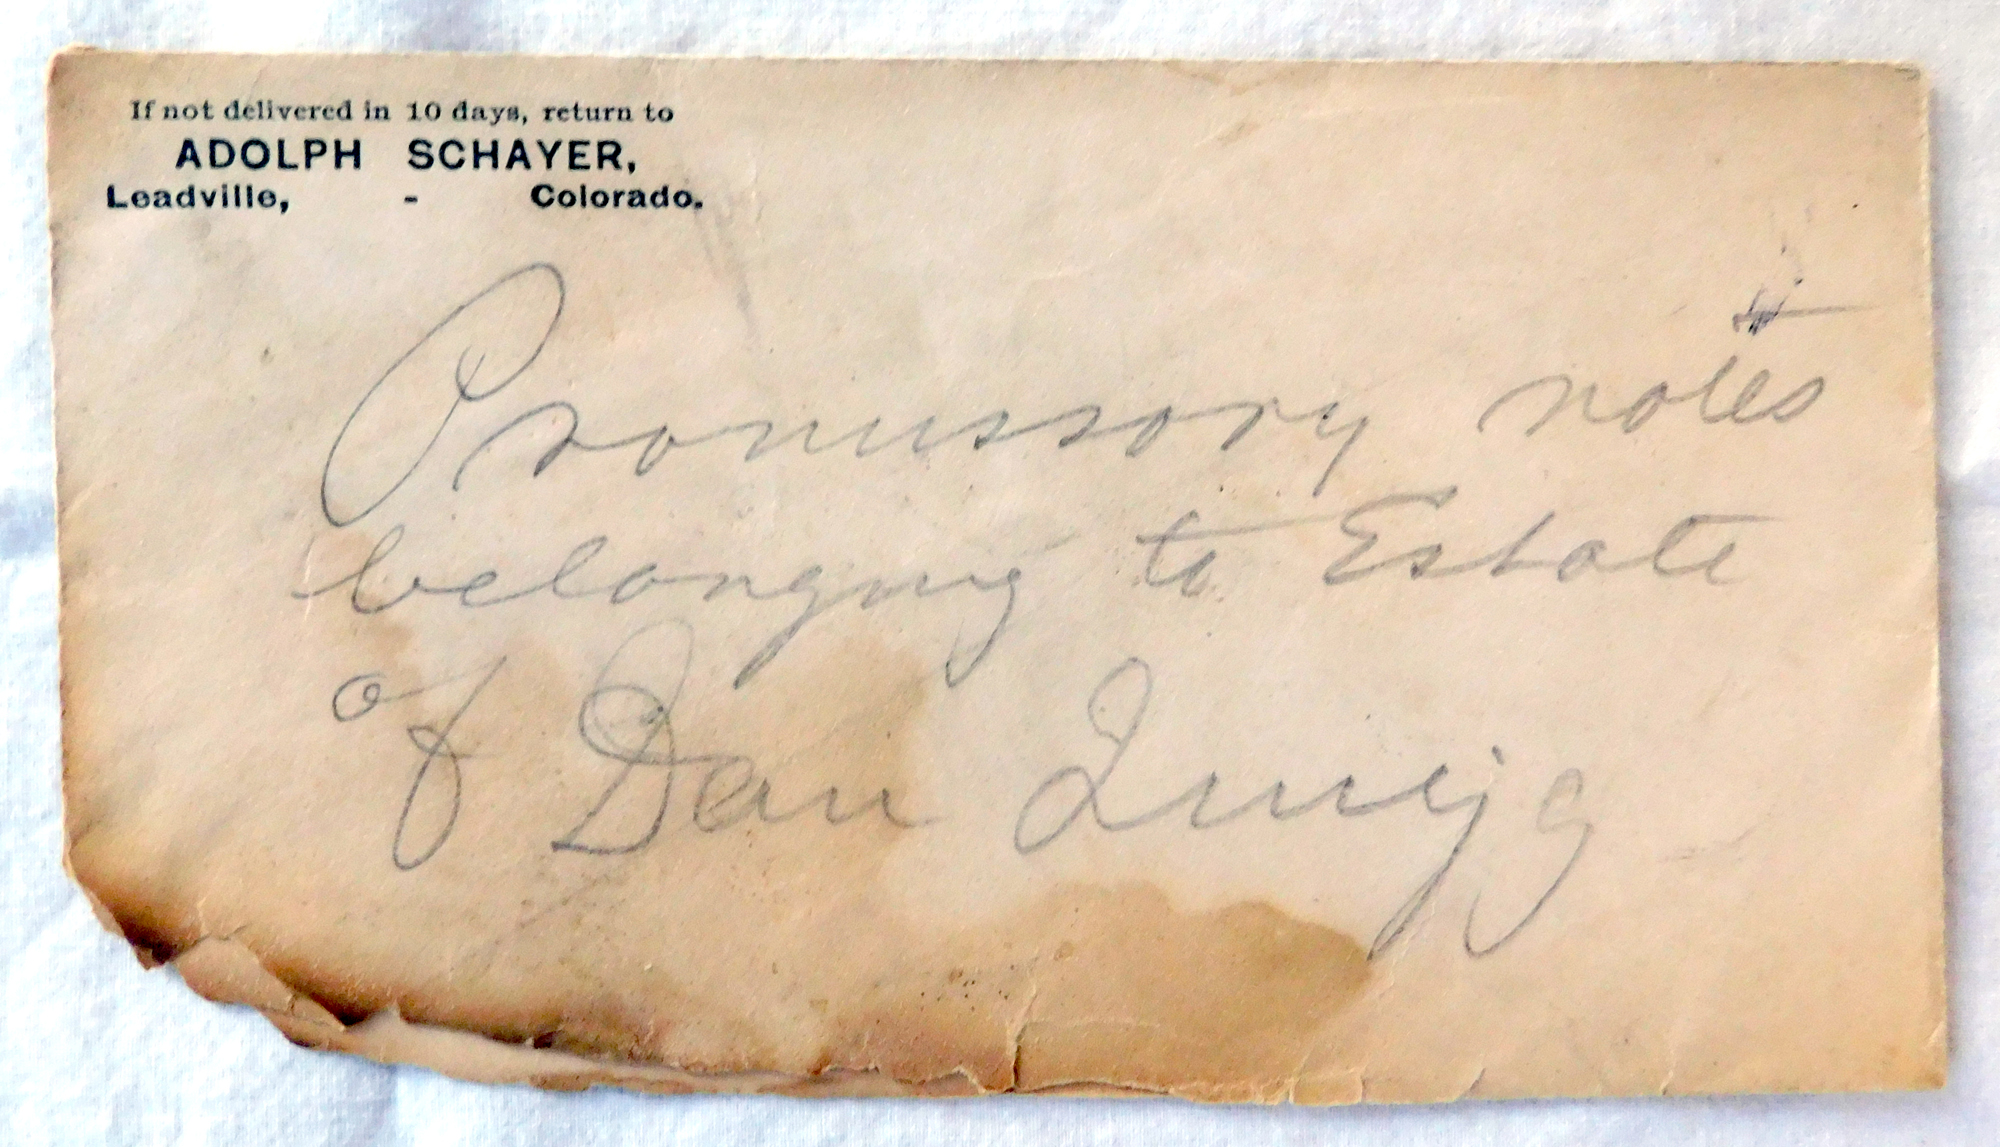 If not delivered in 10 days, return to
ADOLPH SCHAYER,
Leadville, - Colorado.
Promissory notes
belonging to Estate
of Dan Quigg